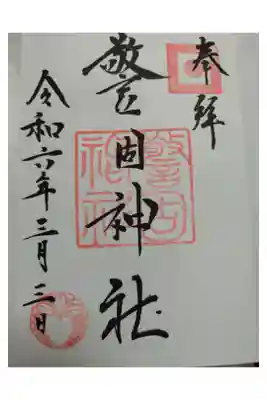 奉拝
警固神社
警固
神社
令和六年三月三日